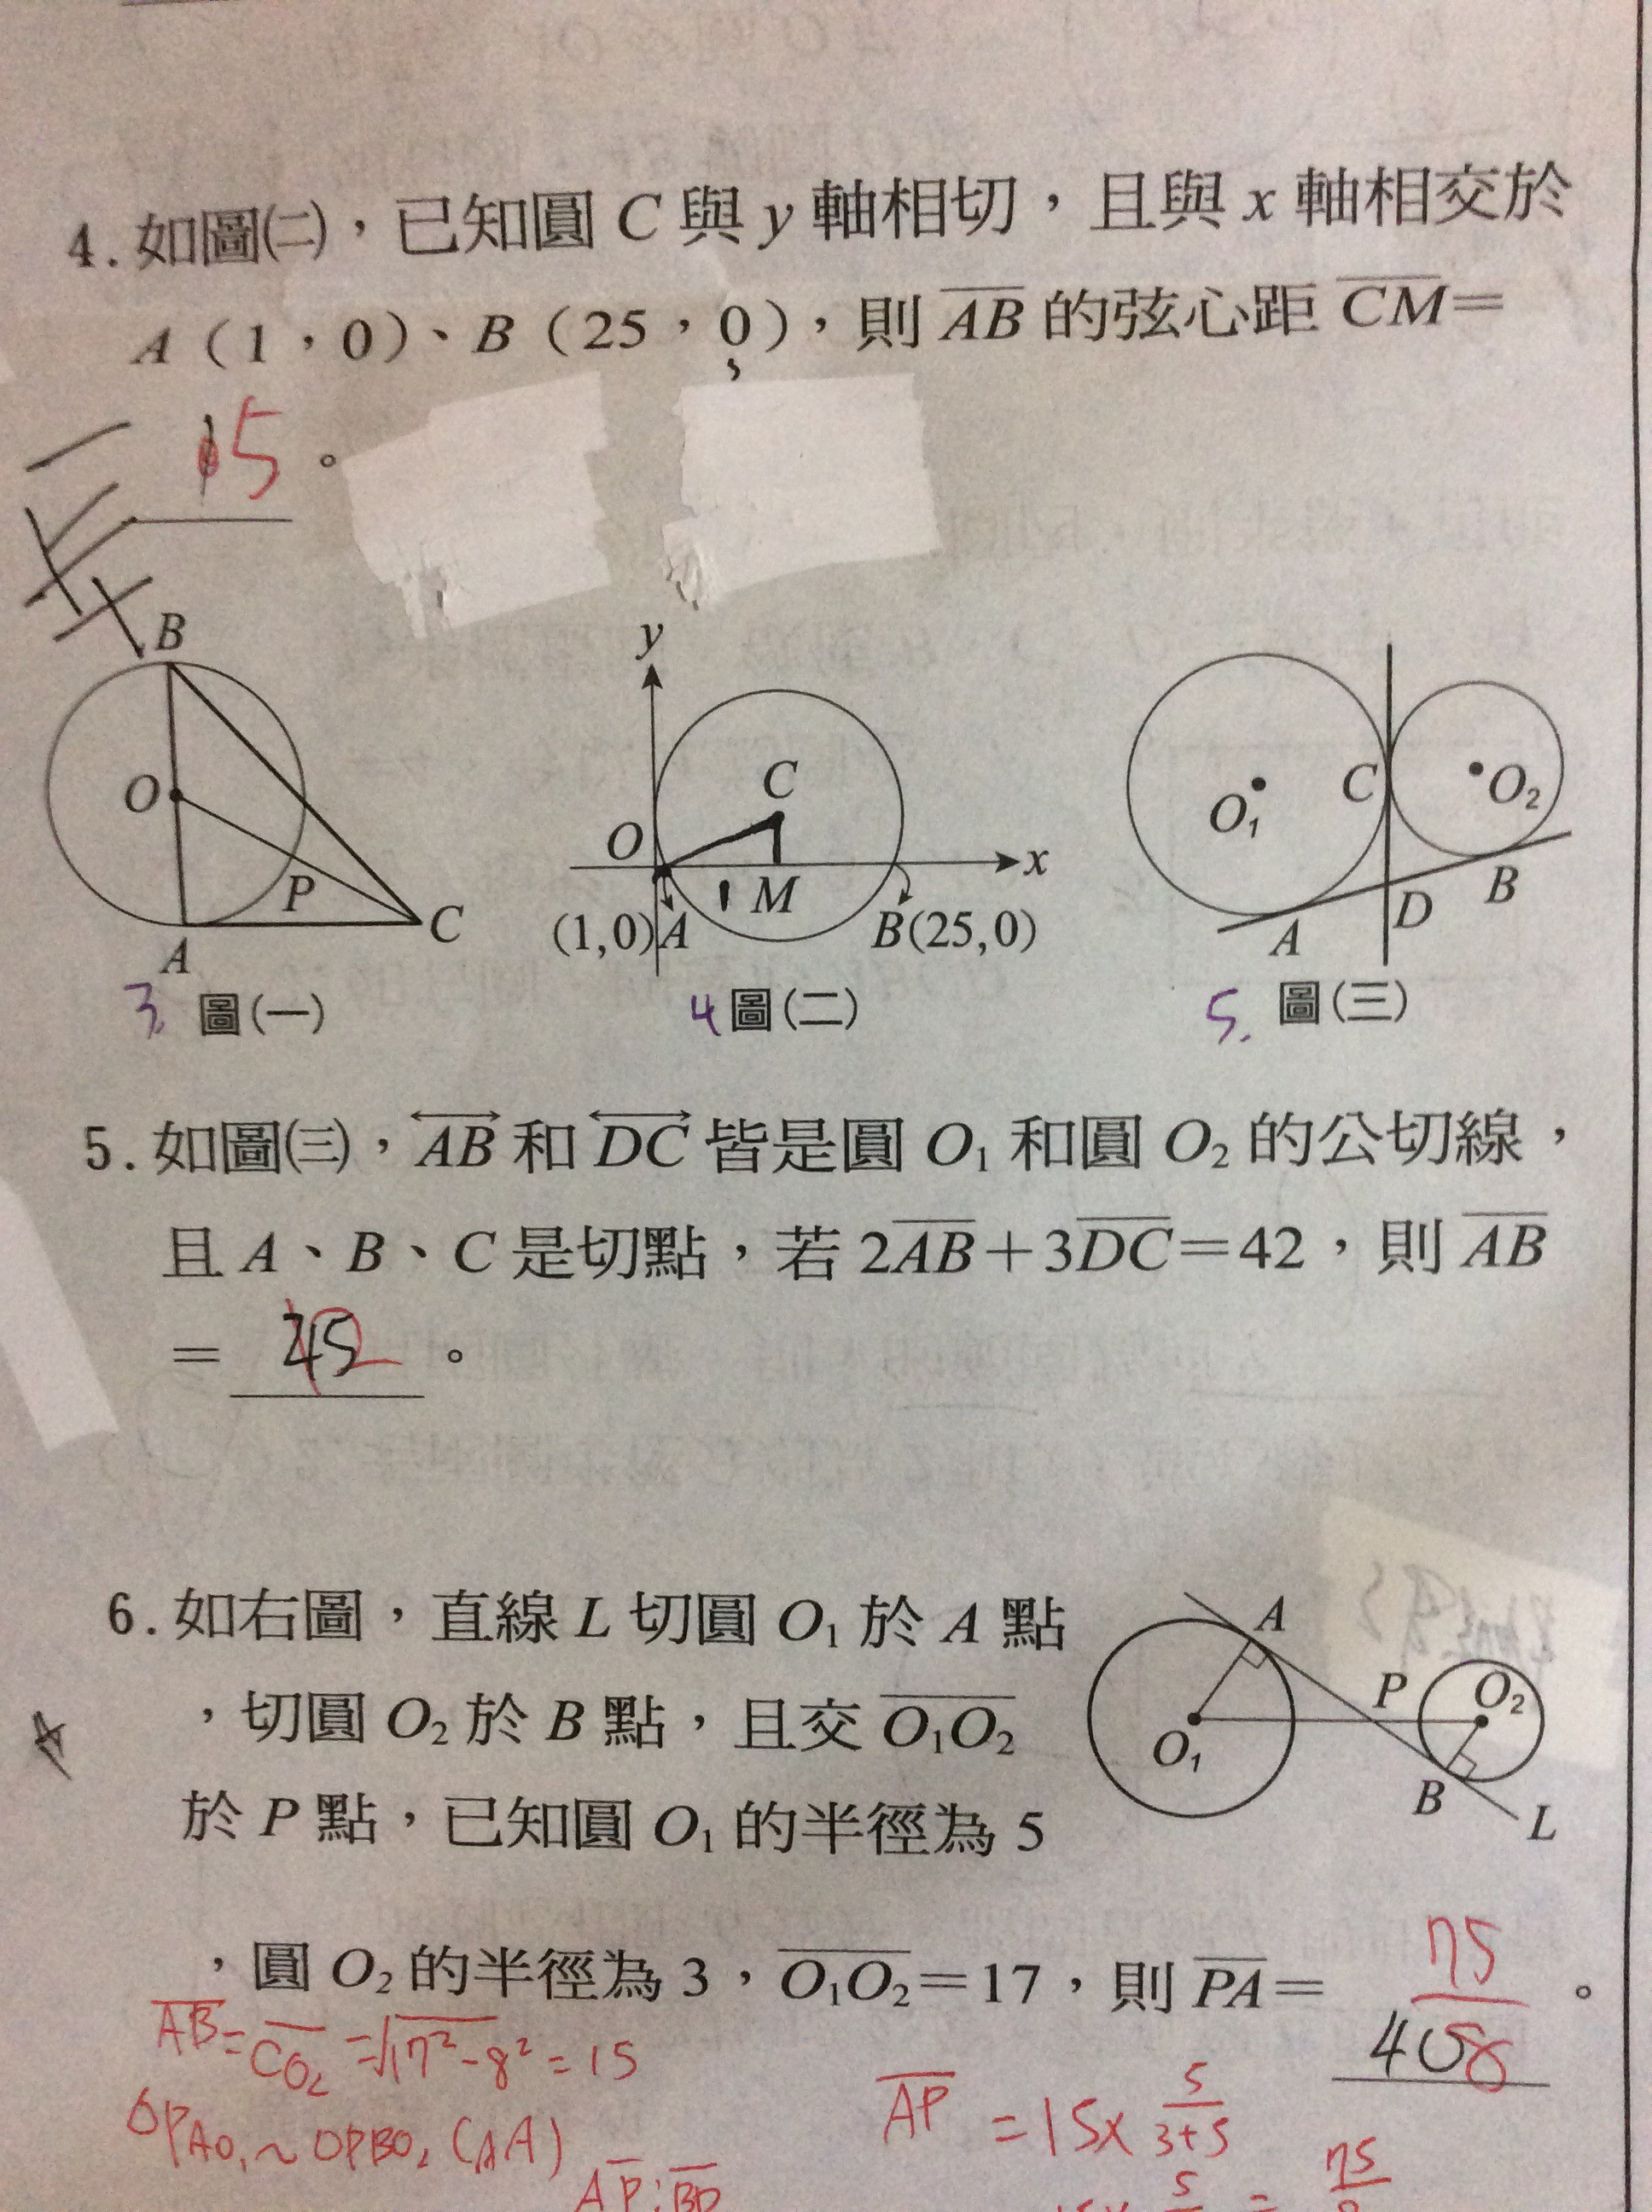 4.如圖㈡，已知圓 C 與 y 軸相切，且與 x 軸相交於
A（1，0）、B（25，0），則 AB 的弦心距 CM＝
5。
B
O
P
A
C
3. 圖(一)
y
C
O
x
M
(1,0)A
B(25,0)
4 圖(二)
O₁
C
O₂
A
D
B
5. 圖(三)
5.如圖㈢，AB 和 DC 皆是圓 O₁ 和圓 O₂ 的公切線，
且 A、B、C 是切點，若 2AB＋3DC＝42，則 AB
＝ 12 。
6.如右圖，直線 L 切圓 O₁ 於 A 點
，切圓 O₂ 於 B 點，且交 O₁O₂
於 P 點，已知圓 O₁ 的半徑為 5
A
P
O₂
O₁
B
L
，圓 O₂ 的半徑為 3，O₁O₂＝17，則 PA＝ 75/8 。
AB=CO₂=√17²-8²=15
△PAO₁~△PBO₂(AA)
AP=15×5/3+5
AP:BP